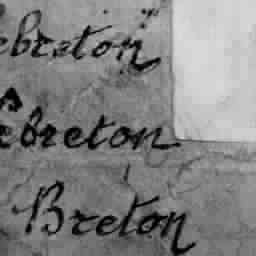 ebreton
ebreton
Breton